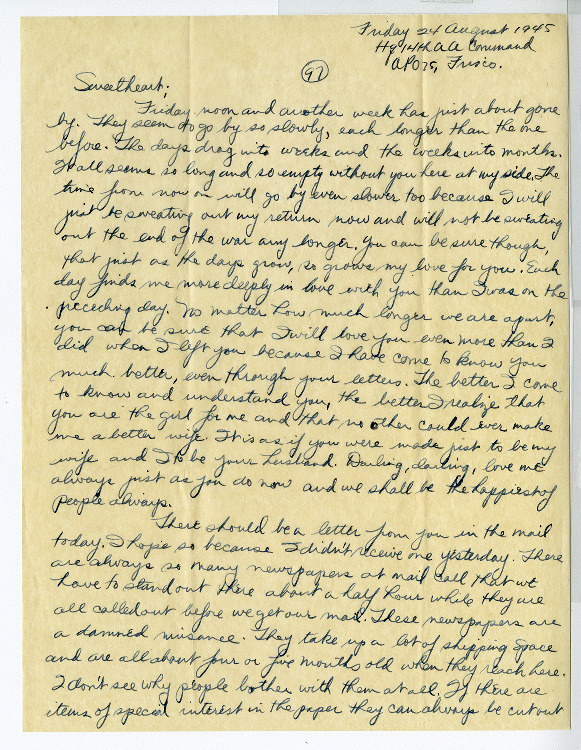 Friday 24 August 1945
Hq 14th AA Command
APO 75, Frisco.
97
Sweetheart;
Friday noon and another week has just about gone
by. They seem to go by so slowly, each longer than the one
before. The days drag into weeks and the weeks into months.
It all seems so long and so empty without you here at my side. The
time from now on will go by even slower too because I will
just be sweating out my return now and will not be sweating
out the end of the war any longer. You can be sure though,
that just as the days grow, so grows my love for you. Each
day finds me more deeply in love with you than I was on the
preceding day. No matter how much longer we are apart,
you can be sure that I will love you even more than I
did when I left you because I have come to know you
much better, even through your letters. The better I come
to know and understand you, the better I realize that
you are the girl for me and that no other could ever make
me a better wife. It is as if you were made just to be my
wife and I to be your husband. Darling, darling, love me
always just as you do now and we shall be the happiest of
people always.
There should be a letter from you in the mail
today. I hope so because I didn't receive one yesterday. There
are always so many newspapers at mail call that we
have to stand out there about a half hour while they are
all called out before we get our mail. These newspapers are
a damned nuisance. They take up a lot of shipping space
and are all about four or five months old when they reach here.
I don't see why people bother with them at all. If there are
items of special interest in the paper they can always be cut out